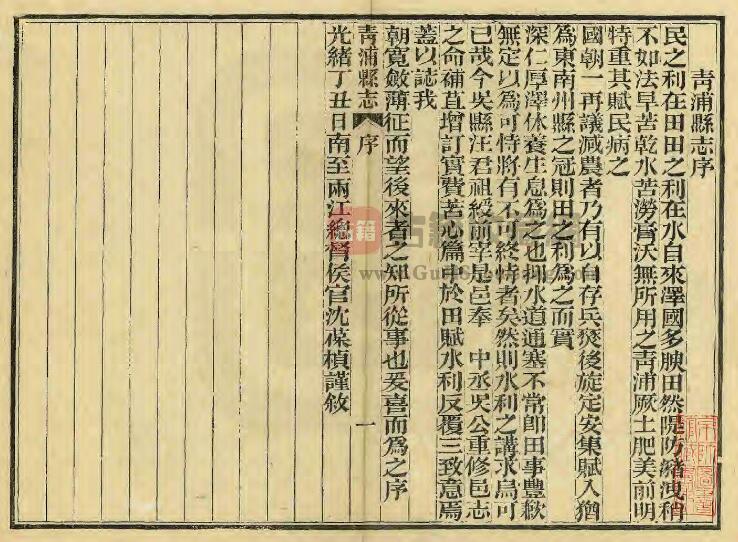 青浦縣志序
民之利在田田之利在水自來澤國多腴田然隄防瀦洩稍
不如法旱苦乾水苦澇膏沃無所用之青浦厥土肥美前明
特重其賦民病之
國朝一再議減農者乃有以自存兵燹後旋定安集賦入猶
為東南州縣之冠則田之利為之而實
深仁厚澤休養生息為之也抑水道通塞不常即田事豐歉
無定以為可恃將有不可終恃者矣然則水利之講求烏可
已哉今吳縣汪君祖綬前宰是邑奉 中丞吳公重修邑志
之命補苴增訂實費苦心篇中於田賦水利反覆三致意焉
蓋以誌我
朝寬斂薄征而望後來者之知所從事也爰喜而為之序
青浦縣志 序 一
光緒丁丑日南至兩江總督侯官沈葆楨謹敘